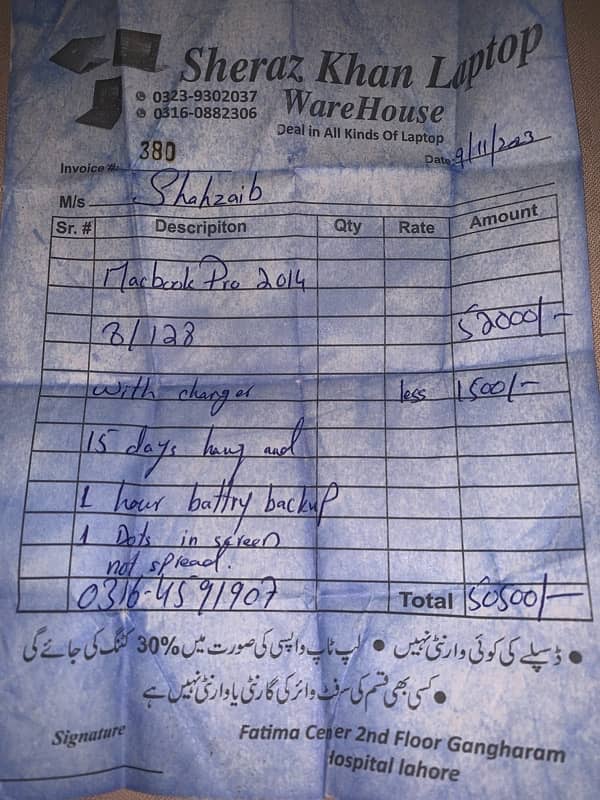 Sheraz Khan Laptop
WareHouse
0323-9302037
0316-0882306
Deal in All Kinds Of Laptop
Invoice #: 380
Date: 9/11/2023
M/s Shahzaib
Sr. # Descripiton Qty Rate Amount
Macbook Pro 2014
8/128 52000/-
with charger less 1500/-
15 days hang and
1 hour battry backup
1 Dots in screen
not spread.
0316-4591907 Total 50500/-
● ڈسپلے کی کوئی وارنٹی نہیں ● لیپ ٹاپ واپسی کی صورت میں 30% کٹنگ کی جائے گی
● کسی بھی قسم کی سوفٹ وائر کی گارنٹی یا وارنٹی نہیں ہے
Signature
Fatima Center 2nd Floor Gangharam
Hospital lahore